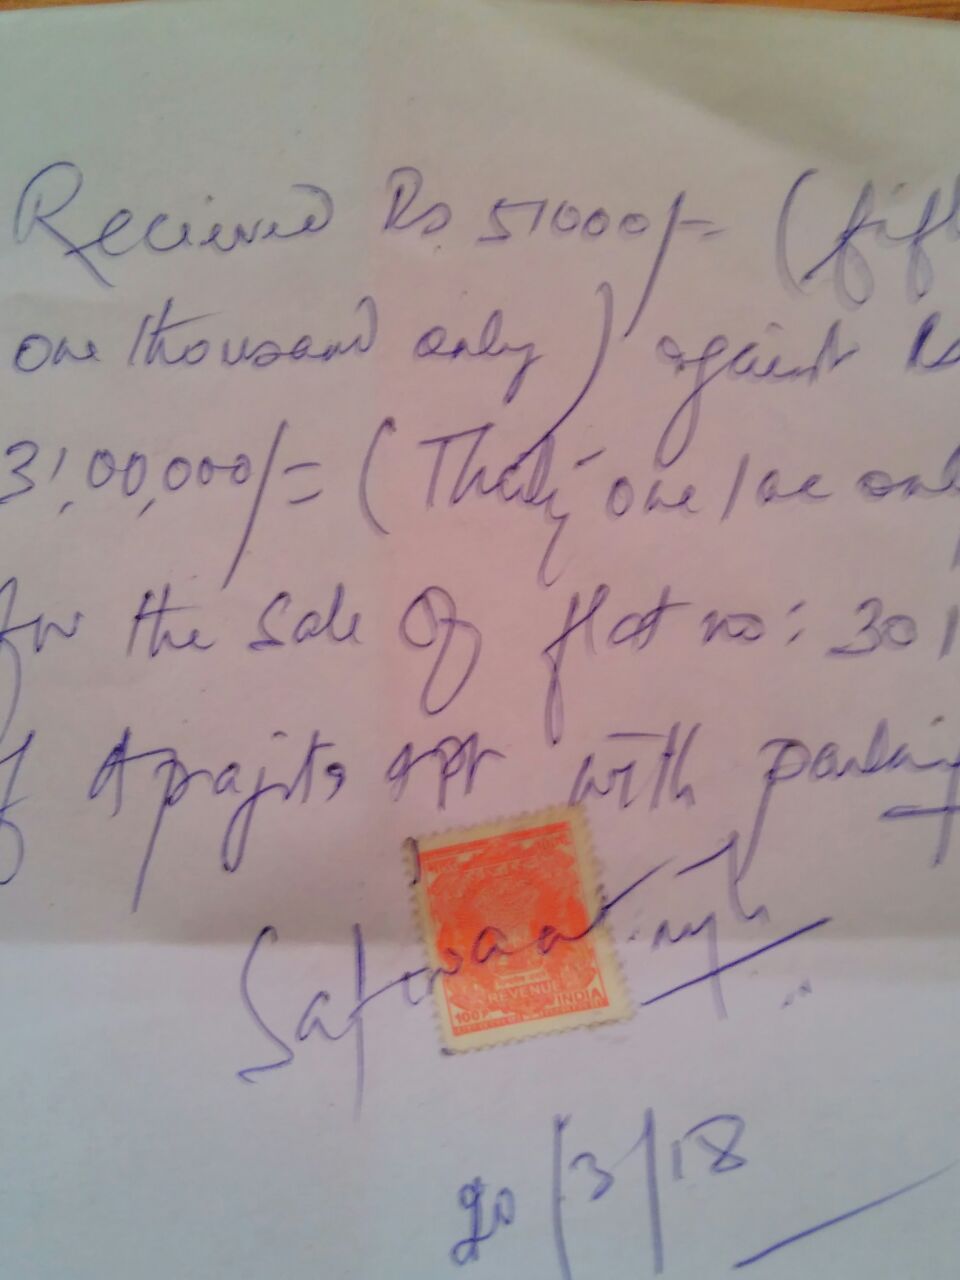 Recieved Rs 51000/- (fif
one thousand only) against Rs
31,00,000/= (Thirty one lac onl
for the Sale Of flat no: 301
of Aprajita APP with parking
Satwant Singh
REVENUE
100P INDIA
20/3/18